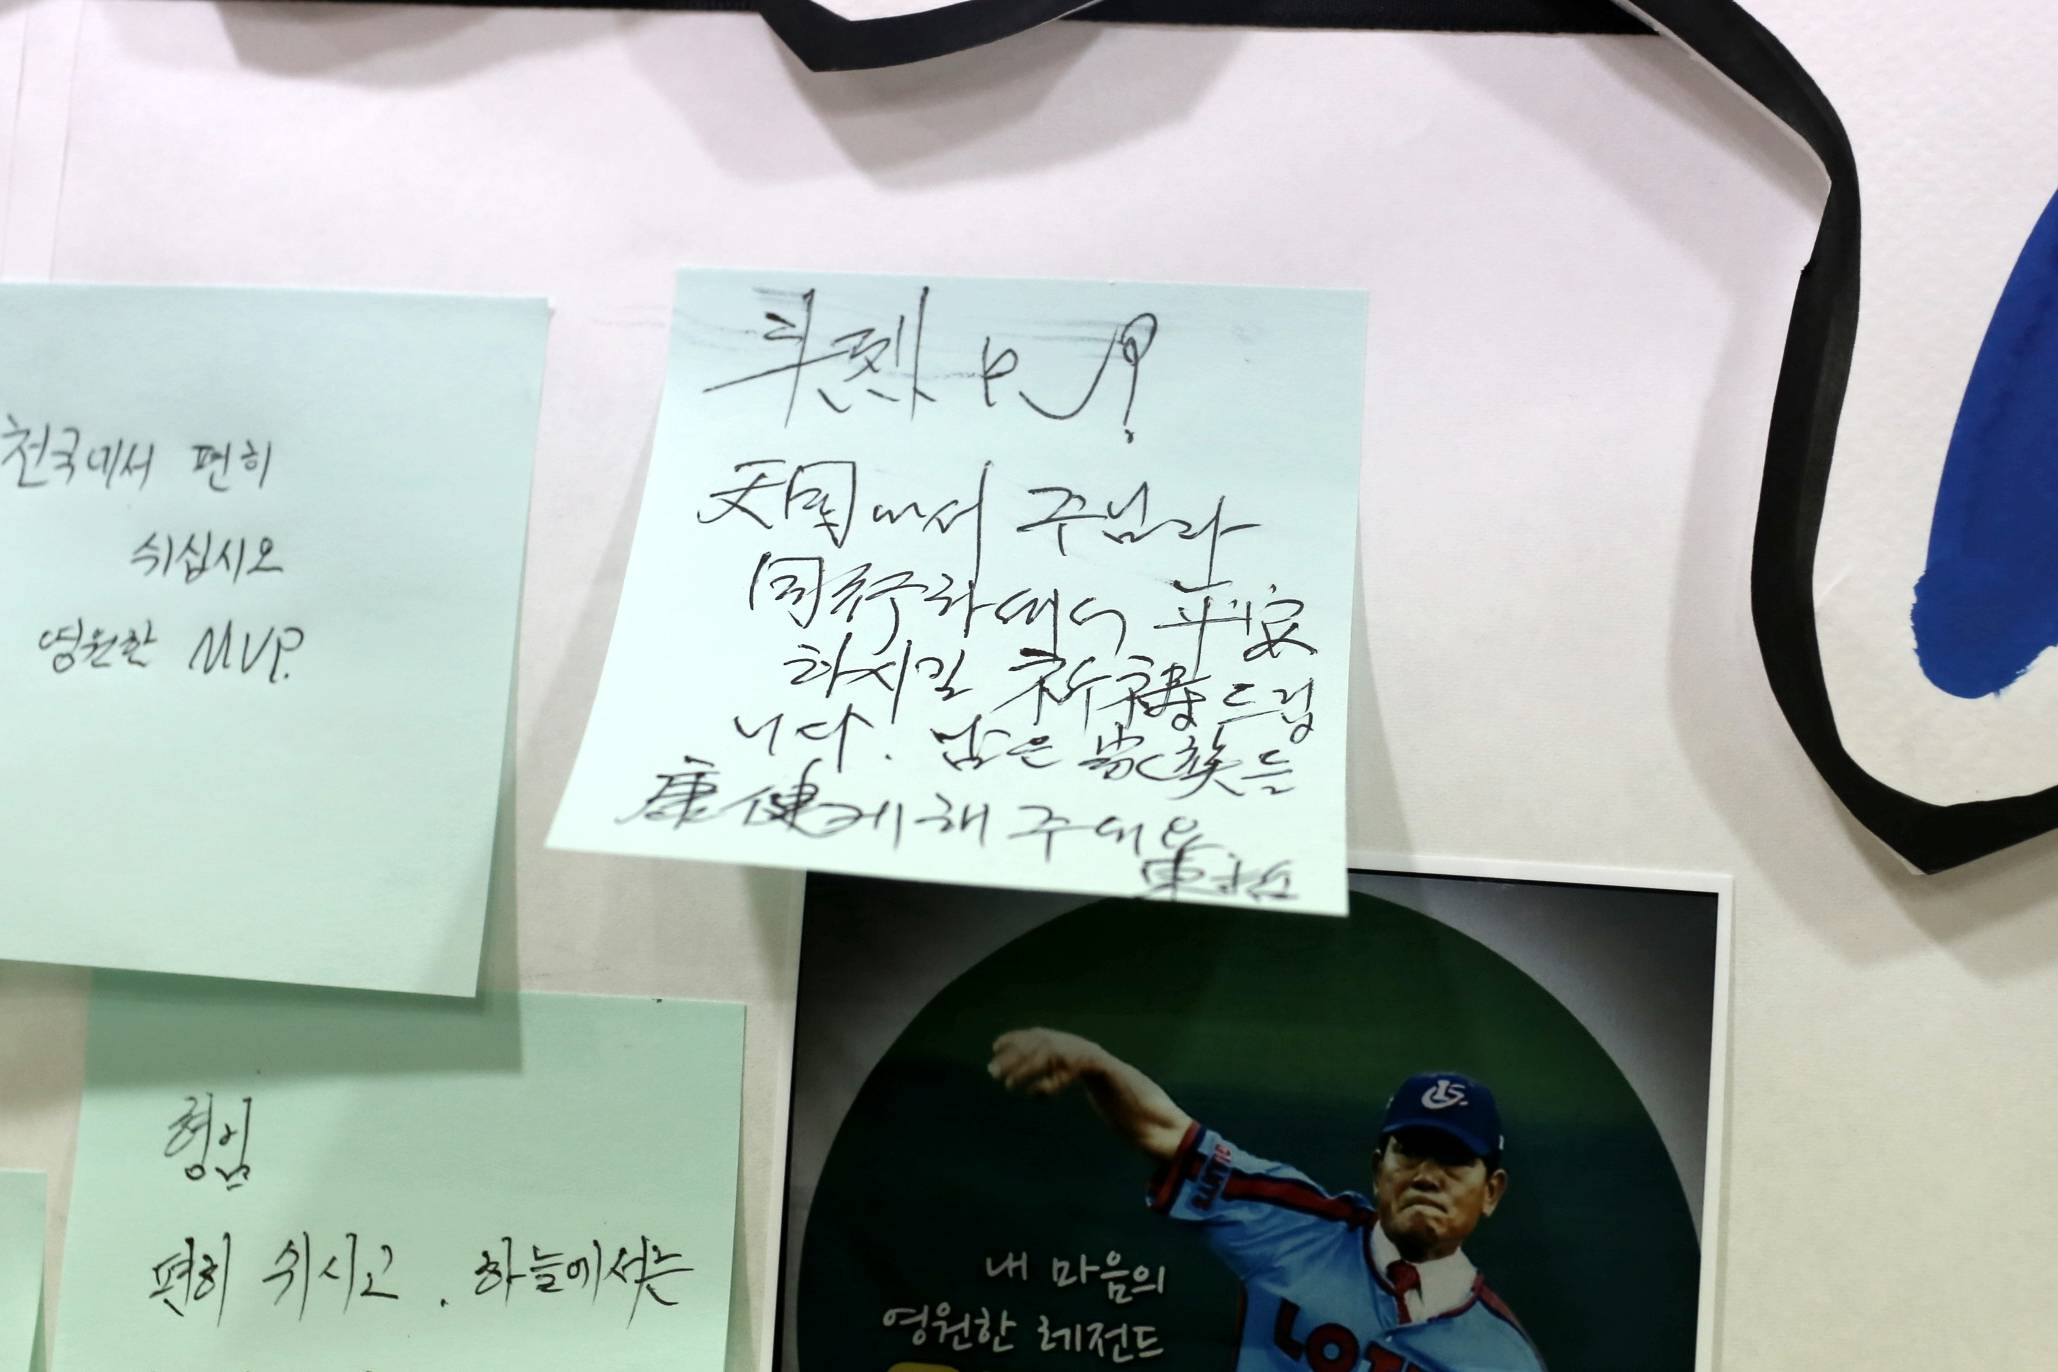 천국에서 편히
쉬십시오
영원한 MVP.
斗烈
天国에서 주님과
同行하며 平安
하시길 祈禱드립
니다. 남은 家族들
康健케 해 주세요
형님
편히 쉬시고. 하늘에서는
내 마음의
영원한 레전드
LOTT